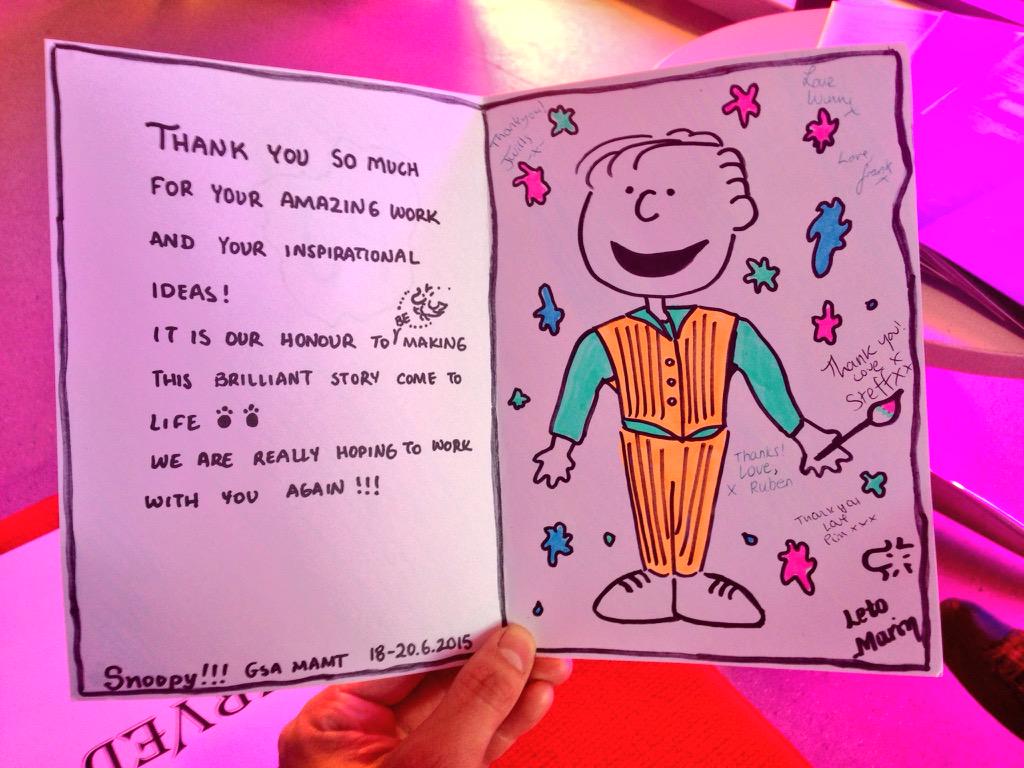 THANK YOU SO MUCH
FOR YOUR AMAZING WORK
AND YOUR INSPIRATIONAL
IDEAS!
IT IS OUR HONOUR TO BE MAKING
THIS BRILLIANT STORY COME TO
LIFE
WE ARE REALLY HOPING TO WORK
WITH YOU AGAIN !!!
Snoopy!!! GSA MAMT 18-20.6.2015
RVED
Thankyou!
-x-
Love
x
Love,
Frank
x
Thank you!
Love x
Steff xx
Thanks!
Love,
x Ruben
Thank you
Love
Pim xxx
Leto